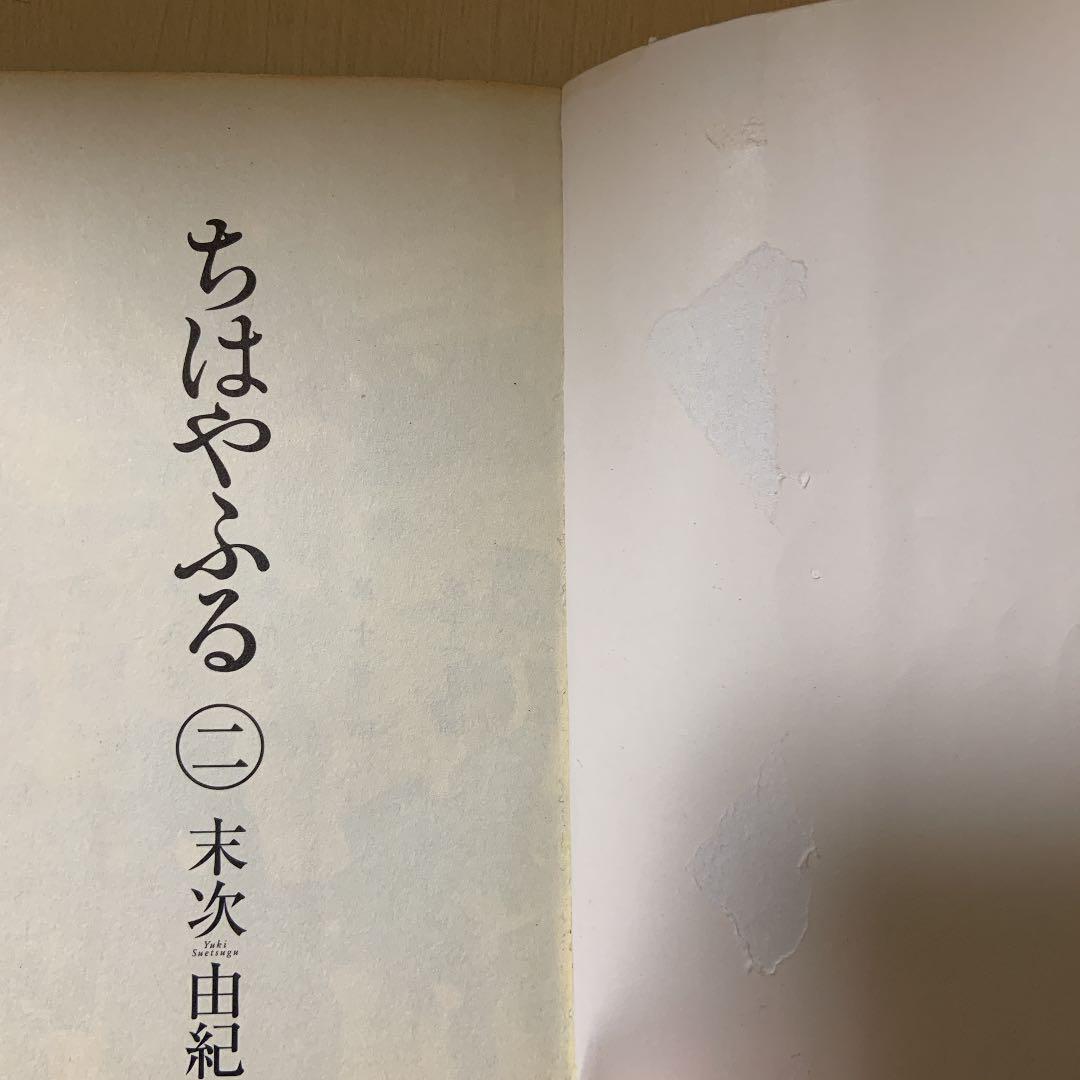 ちはやふる
㊁
末次由紀
Yuki
Suetsugu